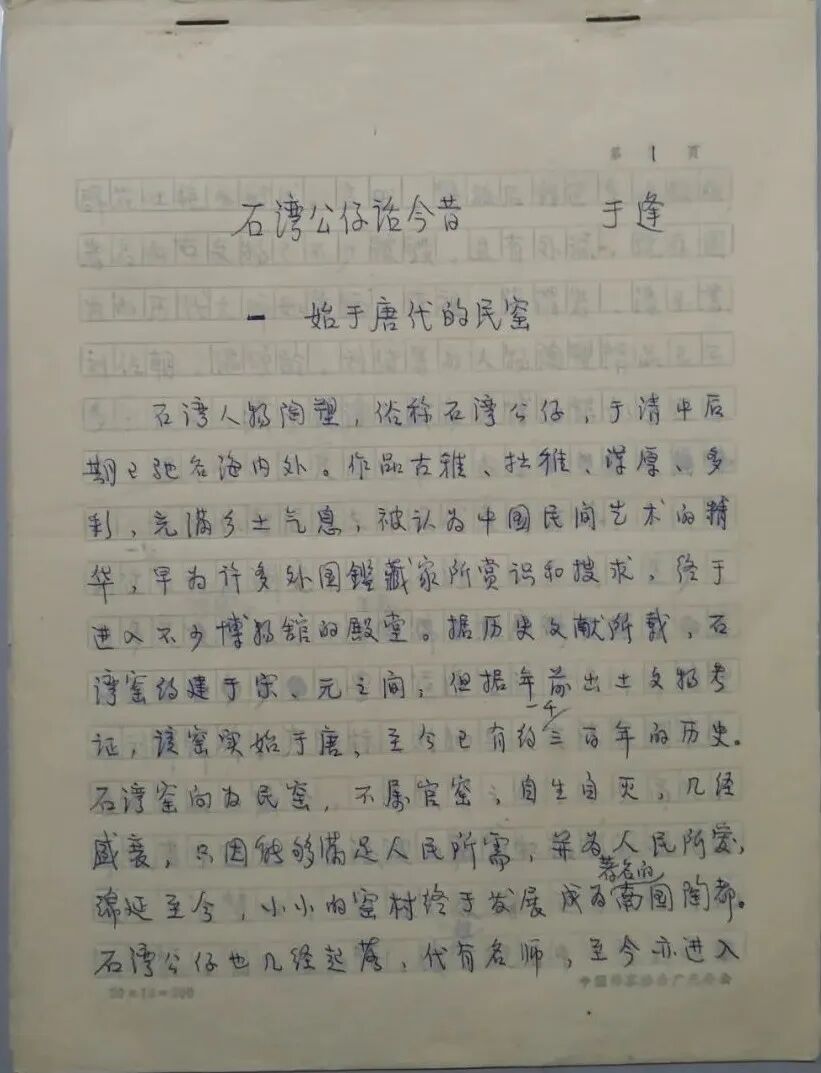 第 1 页
石湾公仔话今昔 于逢
一 始于唐代的民窑
石湾人物陶塑，俗称石湾公仔，于清中后
期已驰名海内外。作品古雅、拙雅、浑厚、多
彩，充满乡土气息，被认为中国民间艺术的精
华，早为许多外国鑑藏家所赏识和搜求，终于
进入不少博物馆的殿堂。据历史文献所载，石
湾窑约建于宋、元之间，但据年前出土文物考
证，该窑实始于唐，至今已有约一千三百年的历史。
石湾窑向为民窑，不属官窑，自生自灭，几经
盛衰，只因能够满足人民所需，并为人民所爱，
绵延至今，小小的窑村终于发展成为著名的南国陶都。
石湾公仔也几经起落，代有名师，至今亦进入
20×15=300